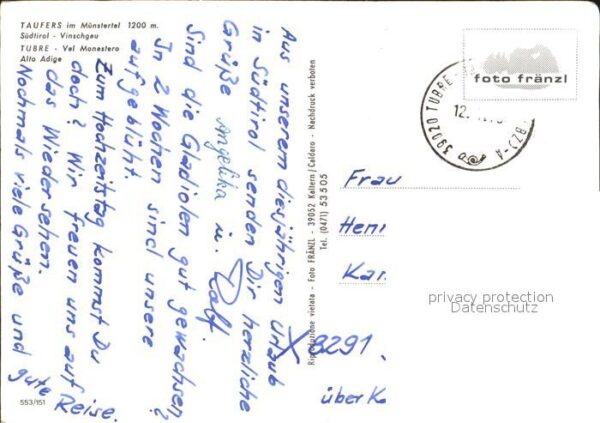 TAUFERS im Münstertel 1200 m.
Südtirol - Vinschgau
TUBRE - Val Monastero
Alto Adige
Aus unserem diesjährigen Urlaub
in Südtirol senden Dir herzliche
Grüße Angelika u. Ralf
Sind die Gladiolen gut gewachsen?
In 2 Wochen sind unsere
aufgeblüht.
Zum Hochzeitstag kommst Du
doch? Wir freuen uns auf
das Wiedersehen.
Nochmals viele Grüße und gute
Reise.
553/151
Riproduzione vietata - Foto FRÄNZL - 39052 Kaltern / Caldaro - Nachdruck verboten
Tel. (0471) 53505
foto fränzl
39020 TUBRE -
(BZ) - A
12.
Frau
Henr
Kar
privacy protection
Datenschutz
8291
über K